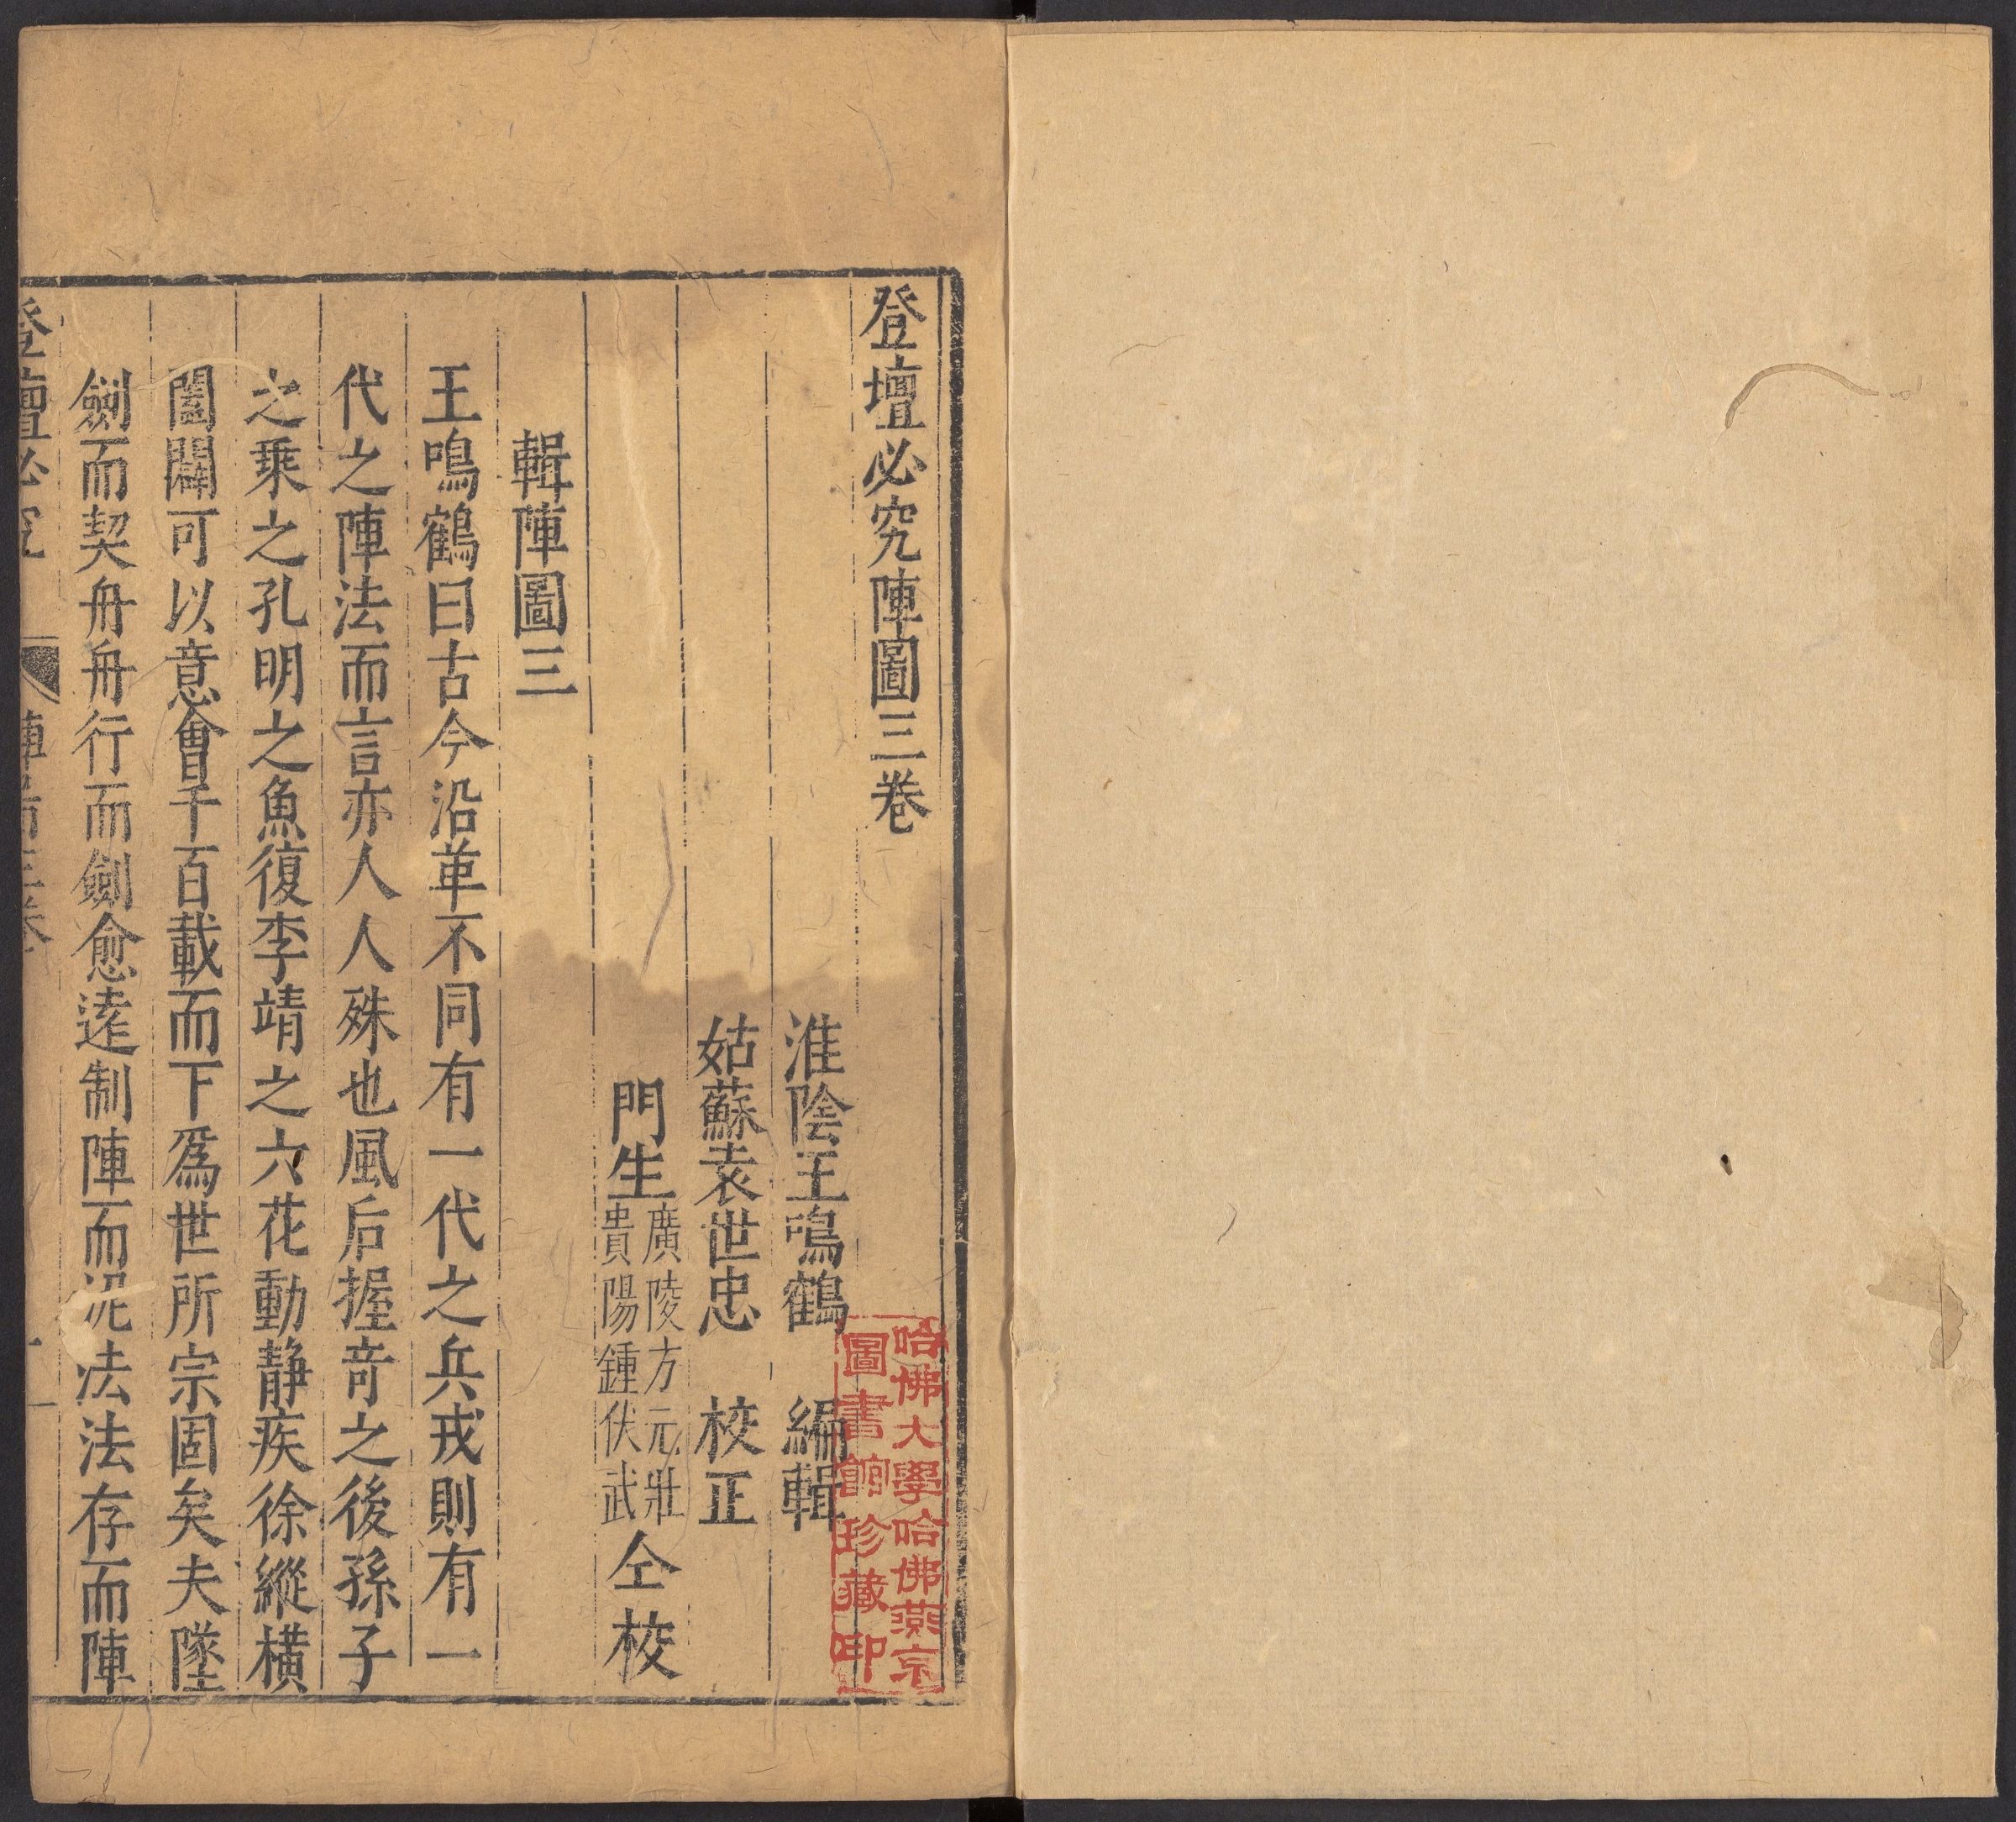 登壇必究陣圖三卷
淮陰王鳴鶴 編輯
姑蘇袁世忠 校正
門生廣陵方元壯貴陽鍾伏武仝校
輯陣圖三
王鳴鶴曰古今沿革不同有一代之兵戎則有一
代之陣法而言亦人人殊也風后握竒之後孫子
之乘之孔明之魚復李靖之六花動静疾徐縱橫
闔闢可以意會千百載而下爲世所宗固矣夫墜
劍而契舟舟行而劍愈遠制陣而泥法法存而陣
登壇必究
哈佛大學哈佛燕京
圖書館珍藏印